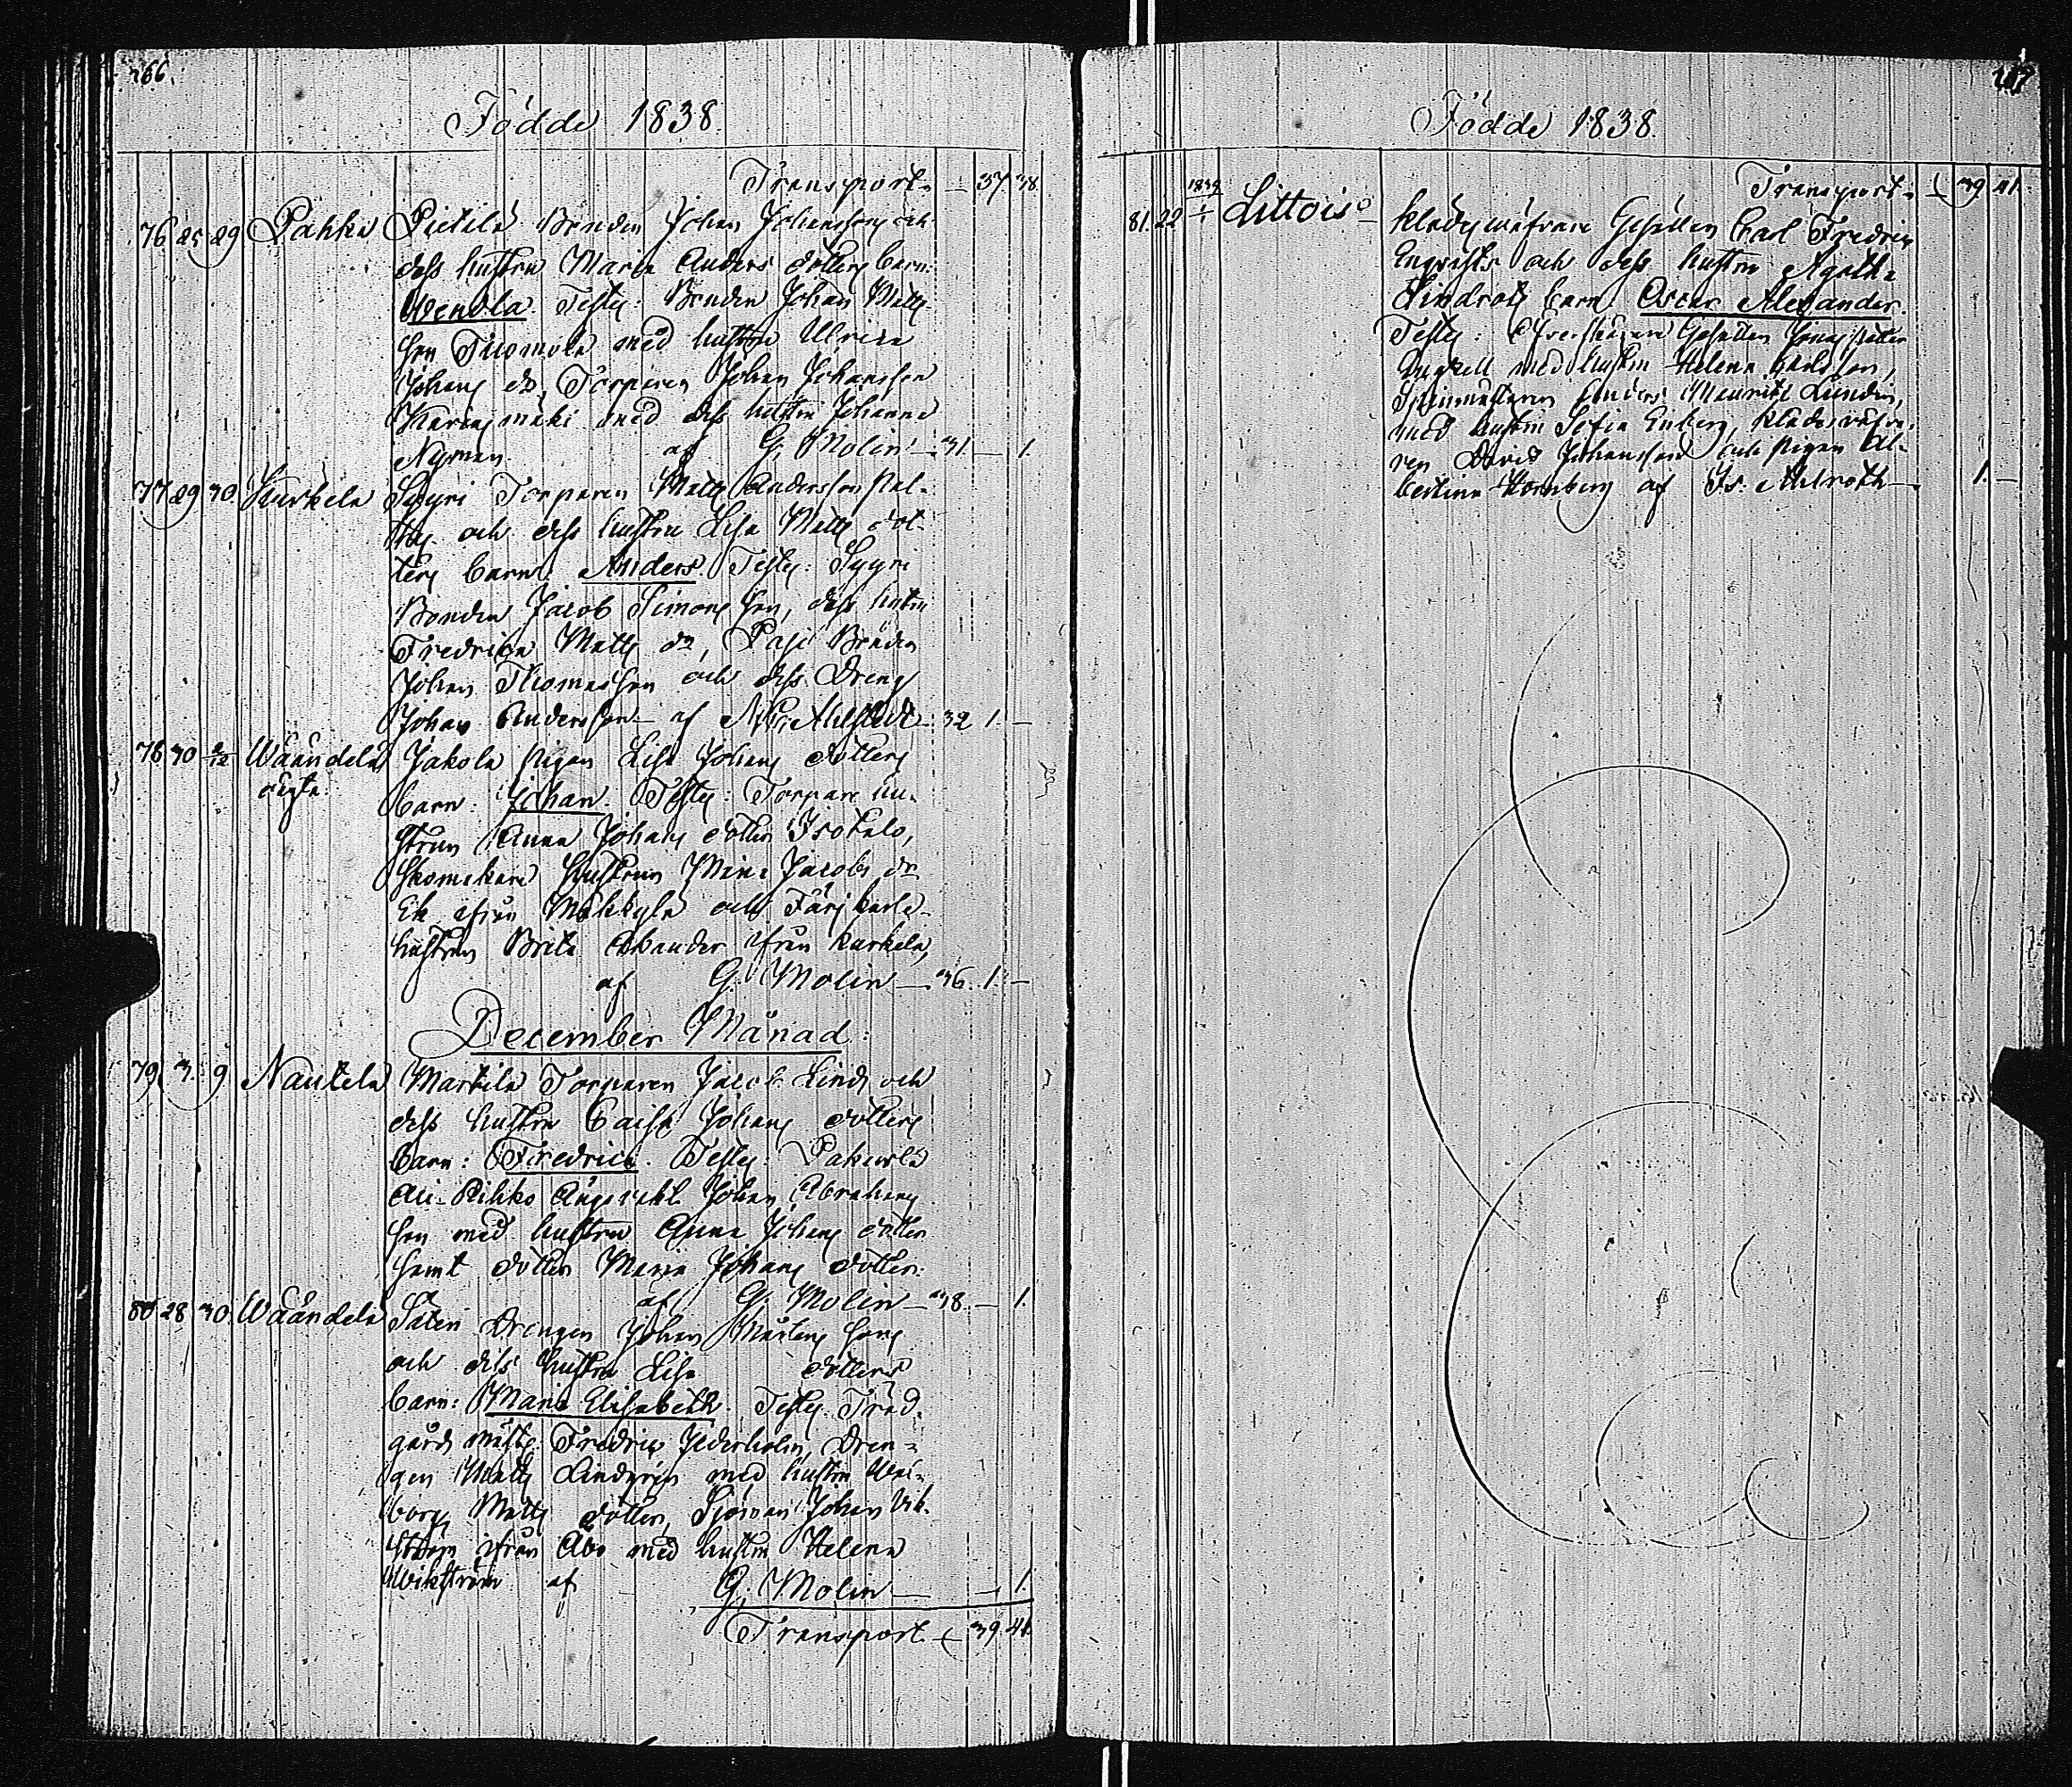 266.
Födde 1838.
Transport. — 37 38.
76 25 29 Pahka Pietilä Bonden Johan Johansson och
dess hustru Maria Anders dotters barn:
Wendla. Testes: Bonden Johan Matts-
son Tuomola med hustru Ulrica
Johans dr, Torparen Johan Johansson
med dess hustru Johanna
Nyman. af G. Molin — 31. — 1.
77 29 30. Kurkela Syyri Torparen Matts Andersson
och dess hustru Lisa Matts dot-
ters barn: Anders. Testes: Syyri
Bonden Jacob Simons son, dess hustru
Fredrika Matts dr, Pasi Bonden
Johan Thomasson och dess Dreng
Johan Andersson — af Ahlstedt — 32 1. —
78 30 2/12 Wäändelä Jakola Pigan Lisa Johans dotters
oägta. barn: Johan. Testes: Torpare hu-
strun Anna Johans dotter Isotalo,
Skomakare Hustrun Maria Jacobs dr
Ek ifrån och Färjkarls-
hustrun Brita ifrån Kurkela,
af G. Molin — 36. 1. —
December Månad:
79. 3. 9 Nautela Martila Torparen Jacob Lind och
dess hustru Caisa Johans dotters
barn: Fredrica. Testes: Pakurla
Ali-Rihko Johan Abrahams
son med hustru Anna Johans dotter
samt dotter Maria Johans dotter.
af G. Molin — 38. — 1.
80 28 30. Wäändelä Säteri Drengen Johan Mårtens sons
och dess hustru Lisa dotters
barn: Maria Elisabeth. Testes: Träd-
gårds mäst. Fredric Dren-
gen Matts Lindgren med hustru Wal-
borg Matts dotter, Sjöman Johan Vik-
ström ifrån Åbo med hustru Helena
Wikström af G. Molin — — 1.
Transport. — 39 41.
267
Födde 1838.
Transport. — 39 41.
81. 22 1839 1/1 Littois Klädeswäfvare Gesällen Carl Fredric
Engqvists och dess hustru Agatha
Lindrots barn Oscar Alexander.
Testes: Gesällen Jonas Petter
med hustru Helena
Spinmästaren Anders Mauritz Lundin,
med hustru Sofia Enberg, Klädesväfva-
ren David Johansson och Pigan Al-
bertina Hornberg af Is: Ahlroth — 1. —